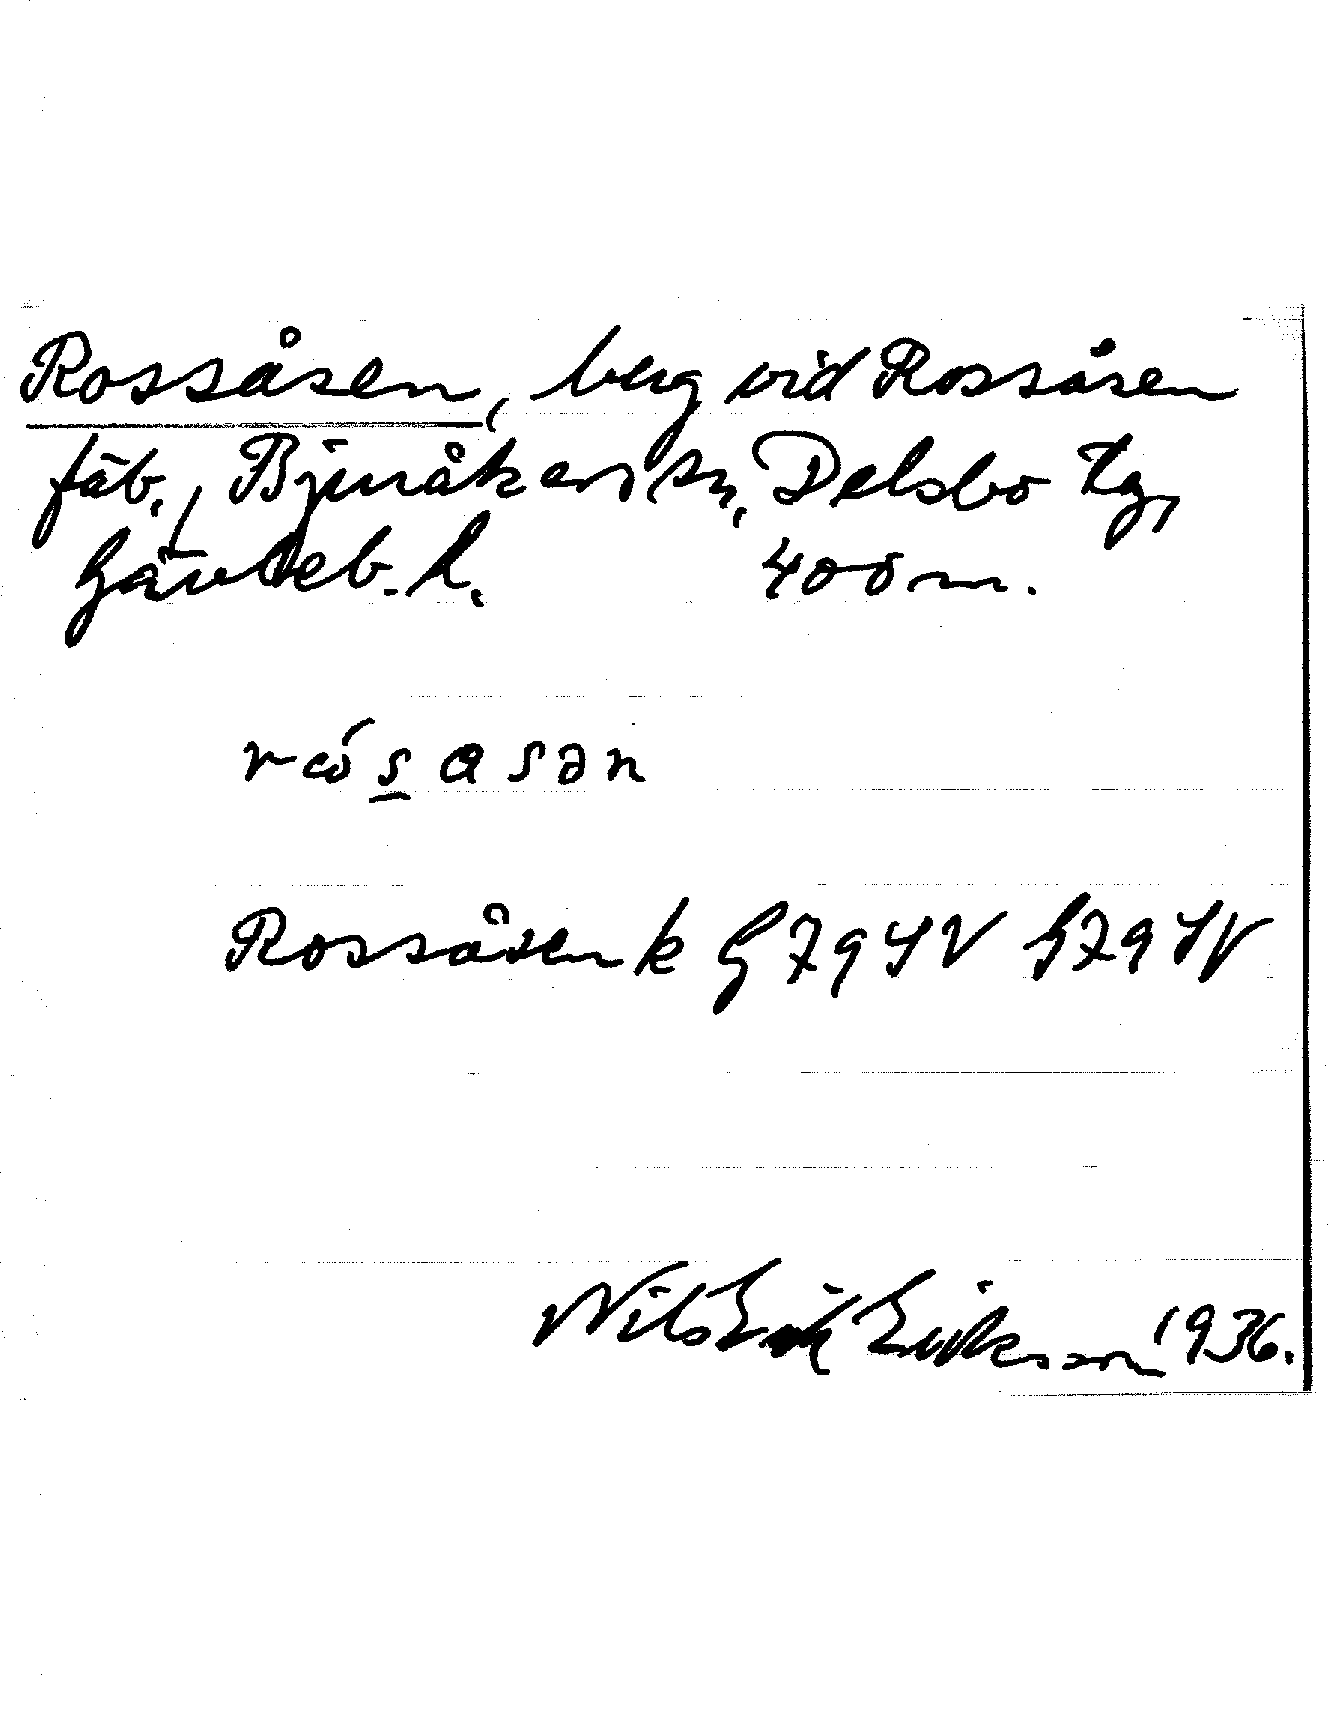 Rossåsen, berg vid Rossåsen
fäb., Bjuråkers sn, Delsbo tg,
Gävleb. l. 400 m.
rɷ́sasən
Rossåsen k G 79 SV h 79 SV
Nils Erik Eriksson 1936.